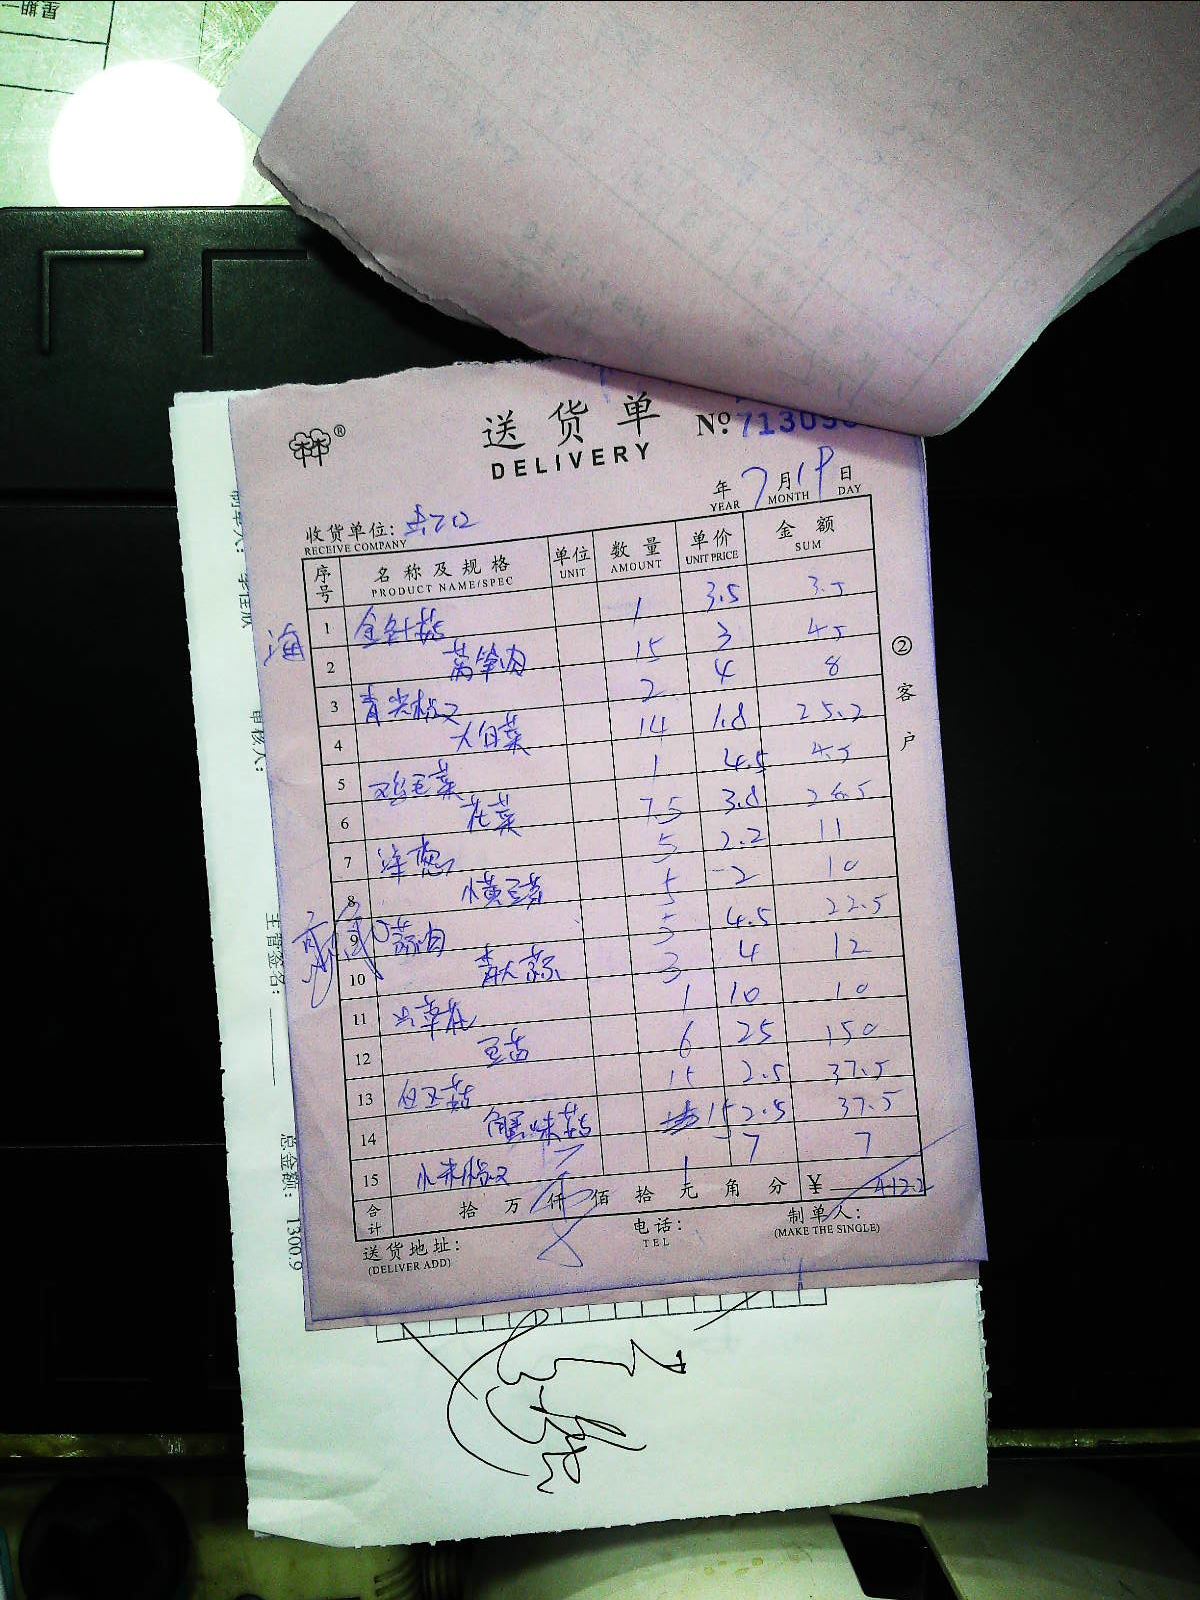 星期一
送货单
DELIVERY
№ 713090
年 7 月 19 日
YEAR MONTH DAY
收货单位:
RECEIVE COMPANY
序号 名称及规格 单位 数量 单价 金额
PRODUCT NAME/SPEC UNIT AMOUNT UNIT PRICE SUM
1 金针菇 1 3.5 3.5
海
2 莴笋肉 15 3 45
3 青尖椒 2 4 8
4 大白菜 14 1.8 25.2
5 鸡毛菜 1 4.5 4.5
6 花菜 7.5 3.8 28.5
7 洋葱 5 2.2 11
8 黄豆芽 5 2 10
9 蒜肉 5 4.5 22.5
10 青大蒜 3 4 12
11 1 10 10
12 豆苗 6 25 150
13 白玉菇 15 2.5 37.5
14 蟹味菇 15 2.5 37.5
15 小米椒 1 7 7
合计 拾 万 仟 佰 拾 元 角 分 ¥ 412.2
送货地址: 电话: 制单人:
(DELIVER ADD) TEL (MAKE THE SINGLE)
②客户
制单人:
审核人:
主管签名:
总金额: 1300.9